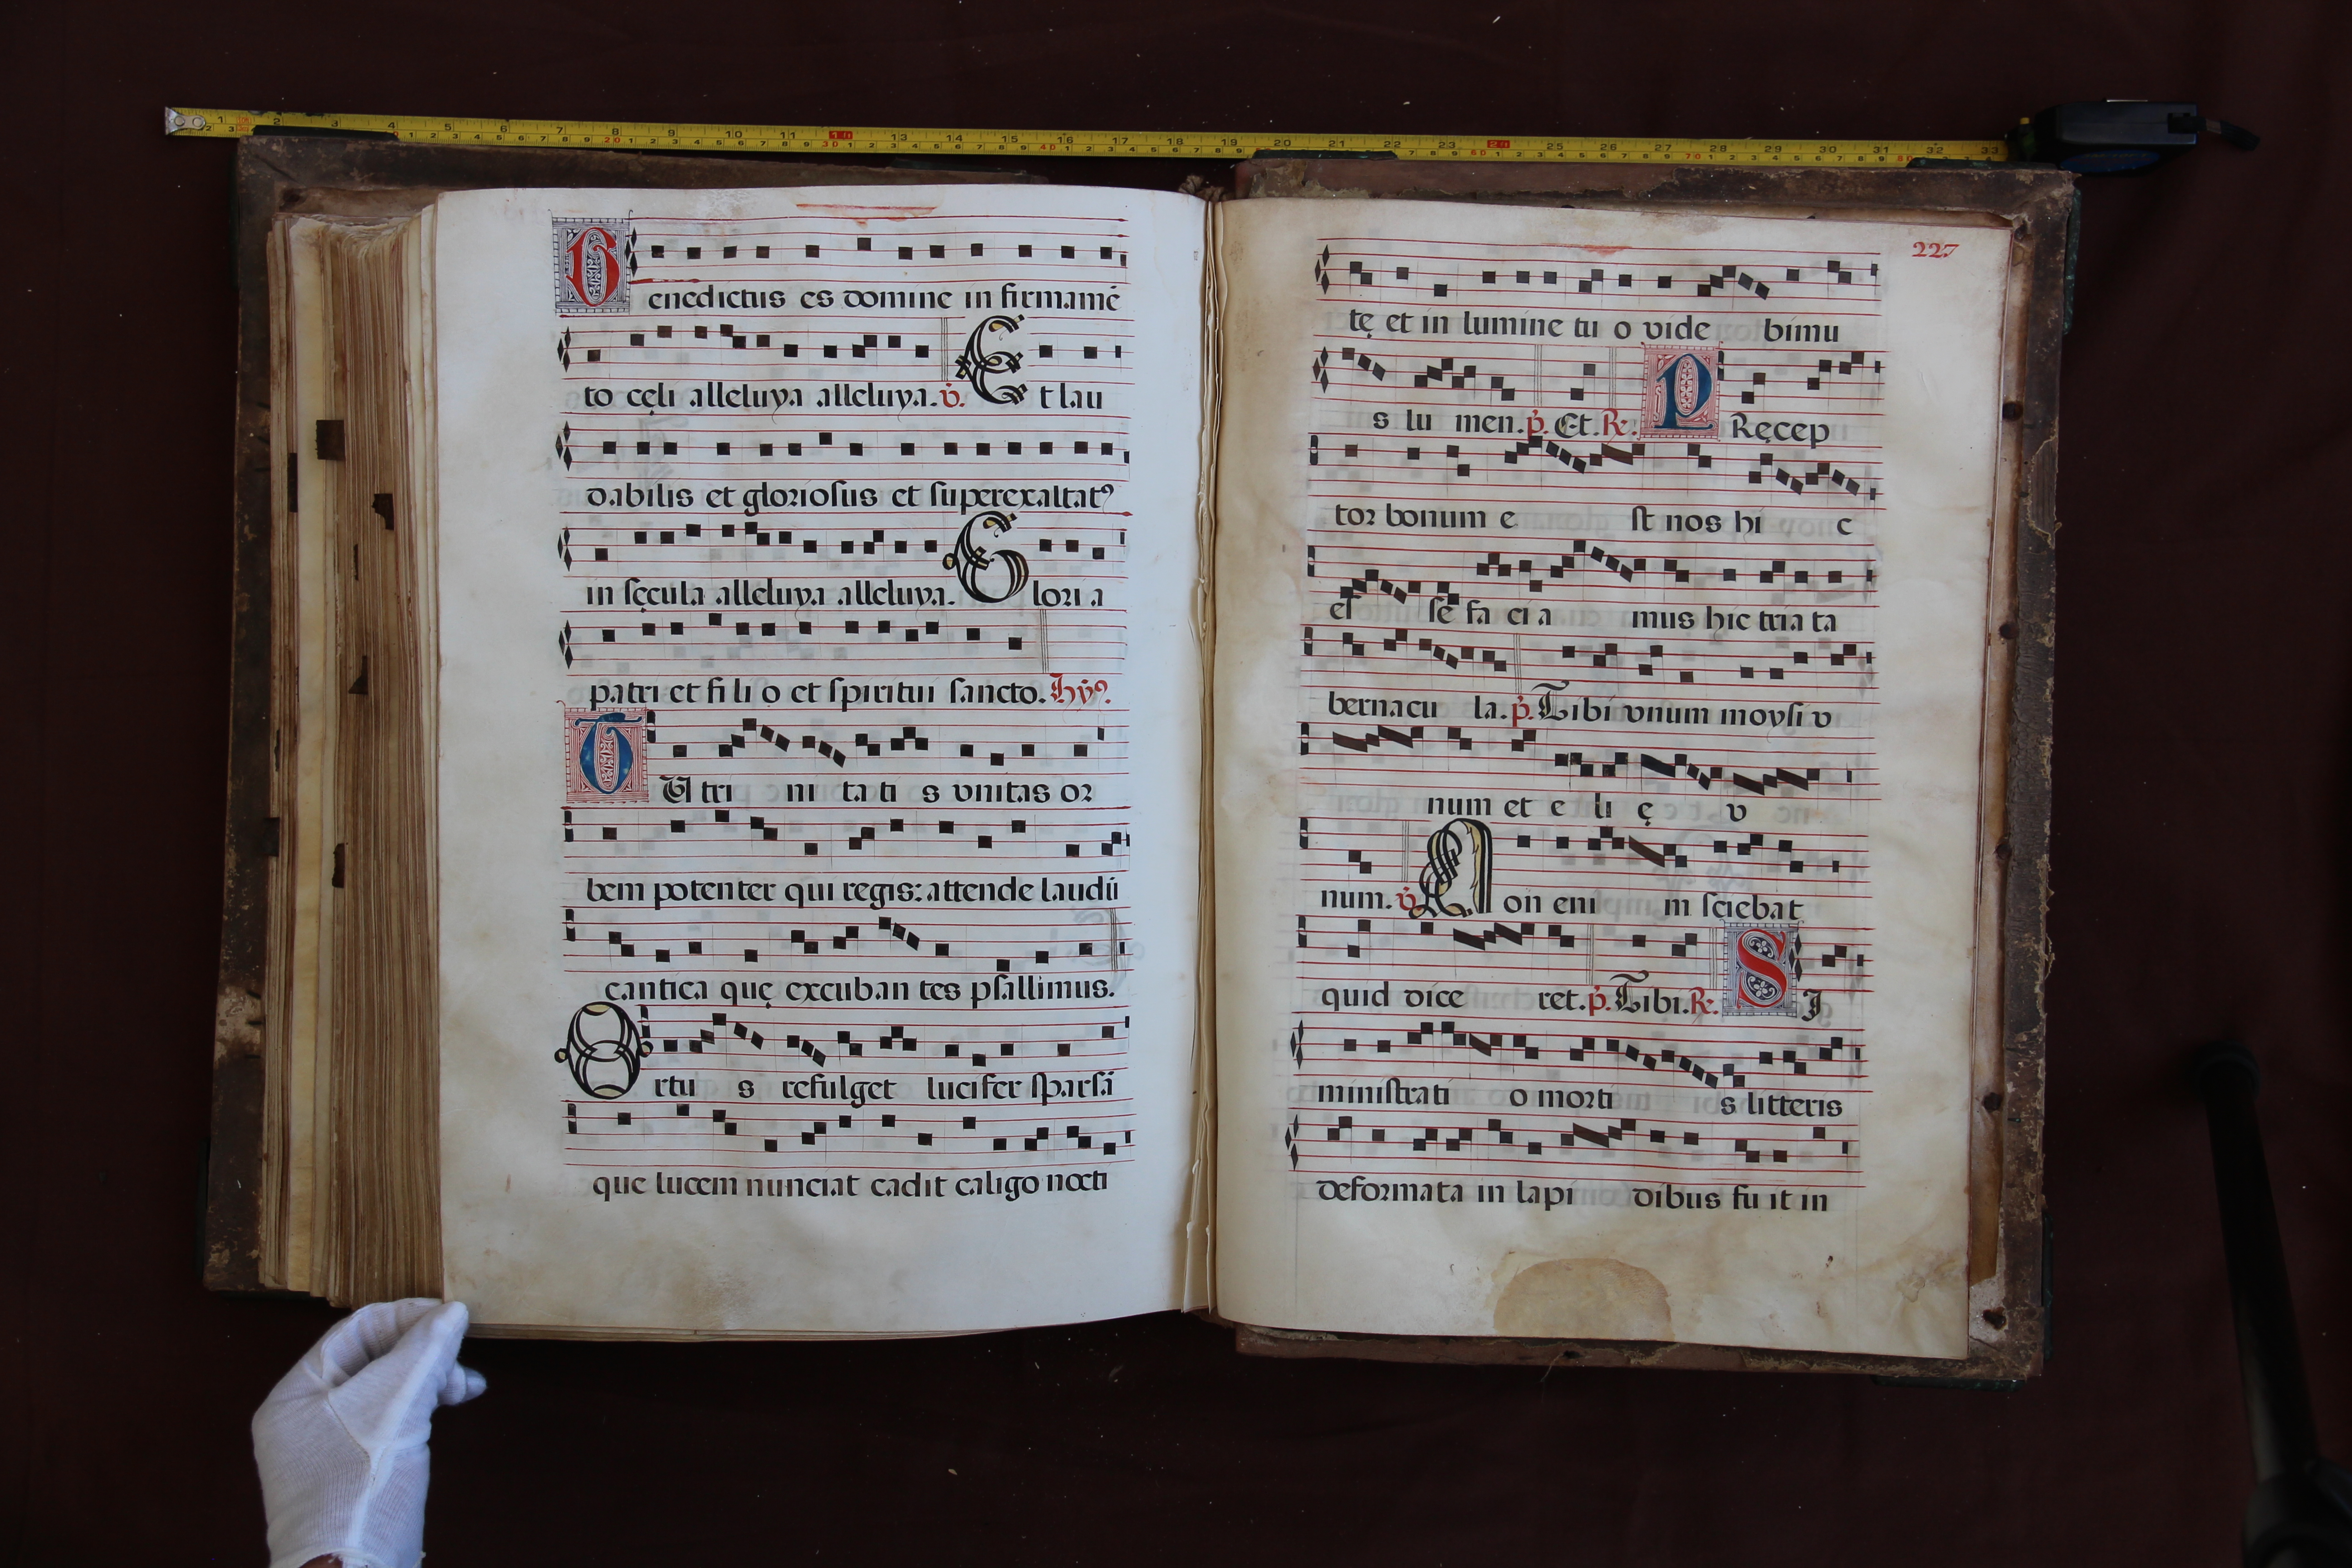 Benedictus es domine in firmamē
to cęli alleluya alleluya. v̇. Et lau
dabilis et gloriosus et superexaltatꝰ
in sęcula alleluya alleluya. Glori a
patri et fi li o et spiritui sancto. Hẏꝰ.
TU tri ni ta ti s vnitas or
bem potenter qui regis: attende laudū
cantica quę excuban tes psallimus.
Ortu s refulget lucifer sparsā
que lucem nunciat cadit caligo nocti
227
tę et in lumine tu o vide bimu
s lu men. p̄. Et. R. PRęcep
tor bonum e st nos hi c
es se fa ci a mus hic tria ta
bernacu la. p̄. Tibi vnum moysi v
num et e li ę v
num. v̇. Non eni m sciebat
quid dice ret. p̄. Tibi. R. SI
ministrati o morti s litteris
deformata in lapi dibus fu it in